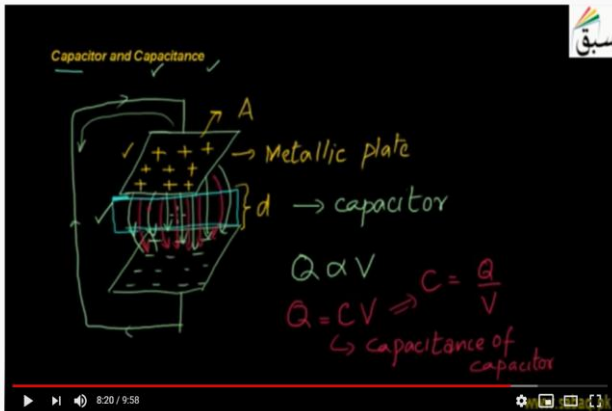 سبق
Capacitor and Capacitance
A
Metallic plate
d → capacitor
Q α V
Q = CV ⇒ C = Q/V
↳ capacitance of
capacitor
8:20 / 9:58